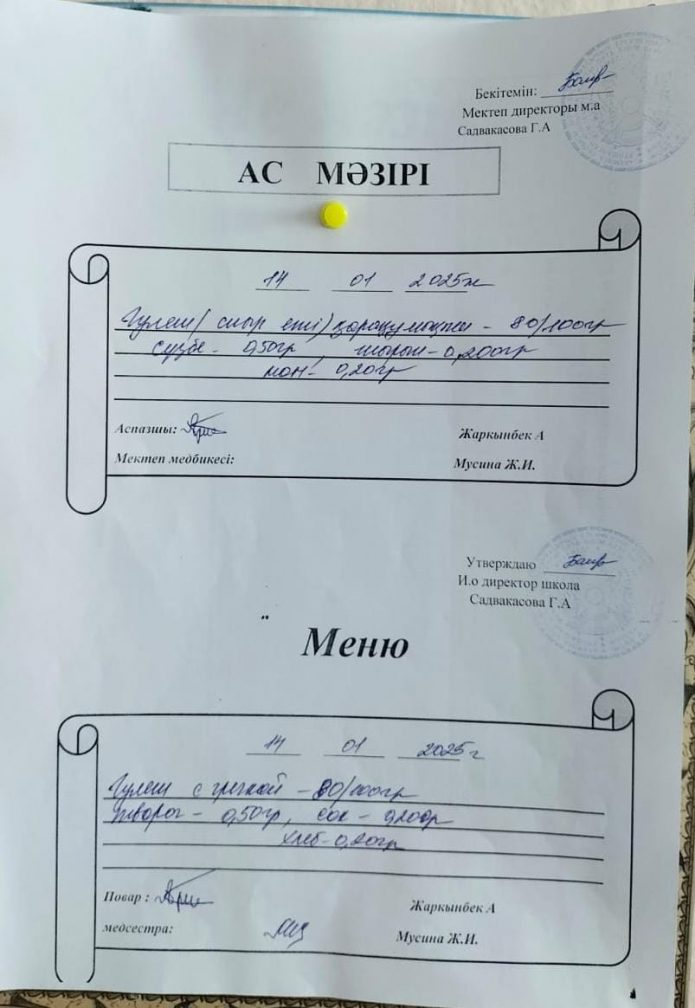 Бекітемін:
Мектеп директоры м.а
Садвакасова Г.А
АС МӘЗІРІ
14 01 2025ж
Гуляш/ сиыр еті/қарақұмықпен - 80/100гр
сүзбе - 0,50гр, шырын - 0,200гр
нан - 0,20гр
Аспазшы: Жаркынбек А
Мектеп медбикесі: Мусина Ж.И.
Утверждаю
И.о директор школа
Садвакасова Г.А
Меню
14 01 2025г
Гуляш с гречкой - 80/100гр
творог - 0,50гр, сок - 0,200гр
хлеб - 0,20гр
Повар : Жаркынбек А
медсестра: Мусина Ж.И.